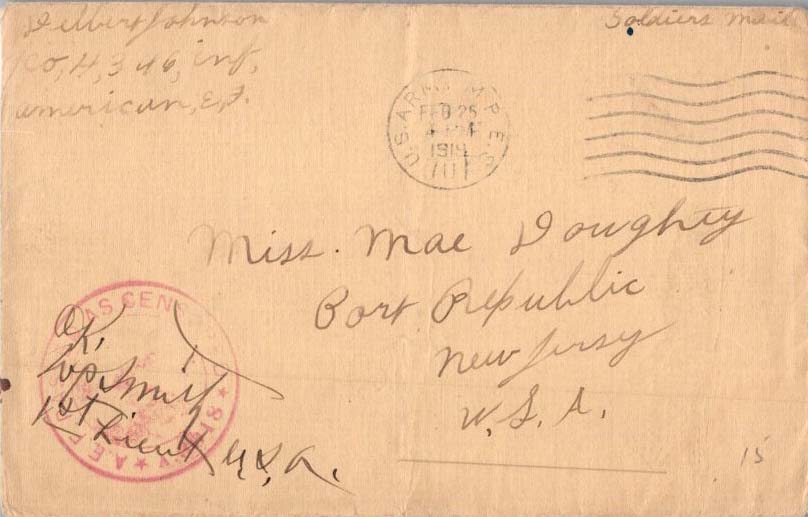 Delbert Johnson
Co, H, 346, inf,
american, E, F.
Soldiers Mail
U.S. ARMY M.P.E.S.
FEB 25
1919
701
Miss. Mae Doughty
Port Republic
New Jersy
U. S. A.
A.E.F. PASSED AS CENSORED
OK,
1st Lieut U, S, A.
15